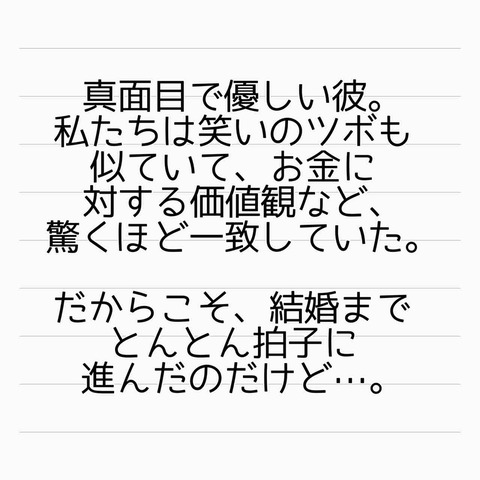 真面目で優しい彼。
私たちは笑いのツボも
似ていて、お金に
対する価値観など、
驚くほど一致していた。
だからこそ、結婚まで
とんとん拍子に
進んだのだけど…。